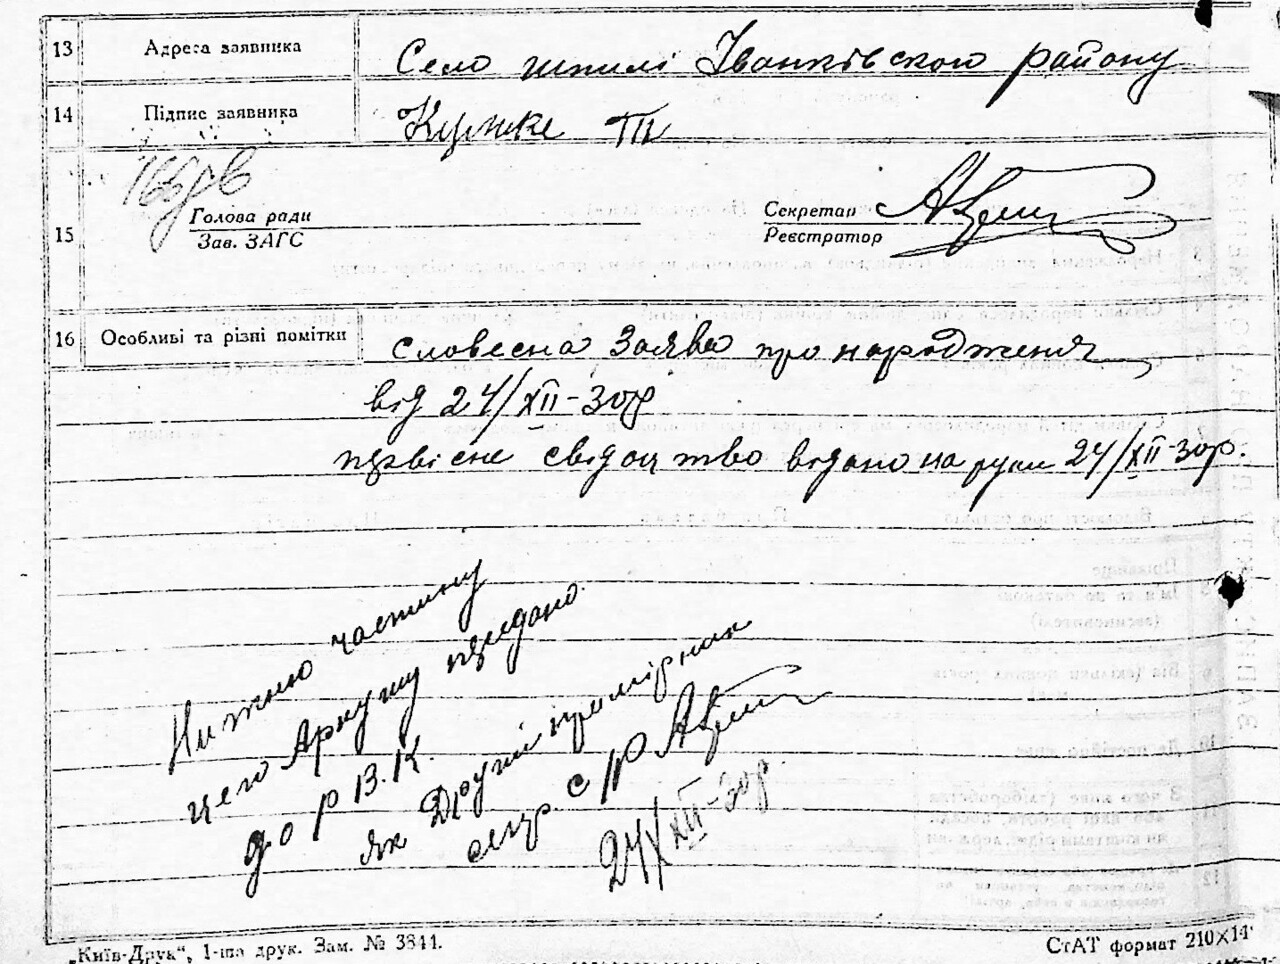 13 Адреса заявника Село шпилі Іванківского району
14 Підпис заявника
15 Голова ради
Зав. ЗАГС
Секретар
Реєстратор
16 Особливі та різні помітки словесна Заява про народження
від 24/XII-30р
первісне свідоцтво видано на руки 24/XII-30р.
Нижню частину
цего Аркушу передано
до Р.В.К.
як Другий примірник
секр. с/р
24/XII-30р.
„Київ-Друк“, 1-ша друк. Зам. № 3841.
СтАТ формат 210×14